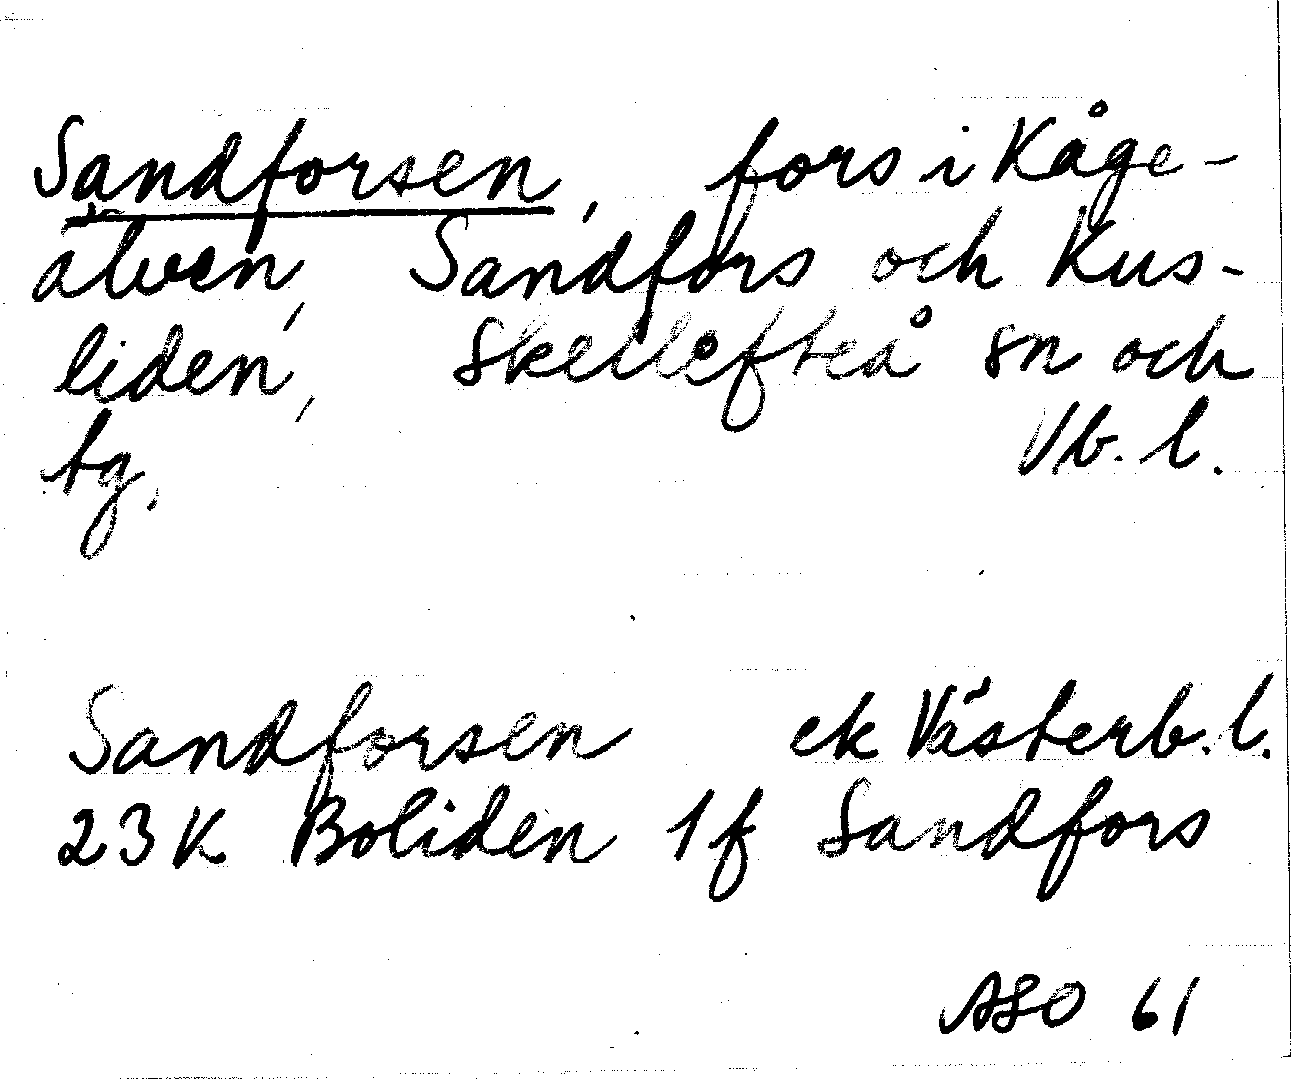 Sandforsen, fors i Kåge-
älven, Sandfors och Kus-
liden, Skellefteå sn och
tg. Vb. l.
Sandforsen ek Västerb. l.
23 K Boliden 1f Sandfors
ASO 61